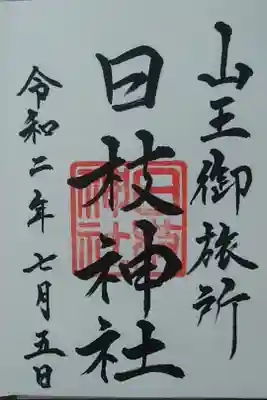 山王御旅所
日枝神社
令和二年七月五日
日枝神社